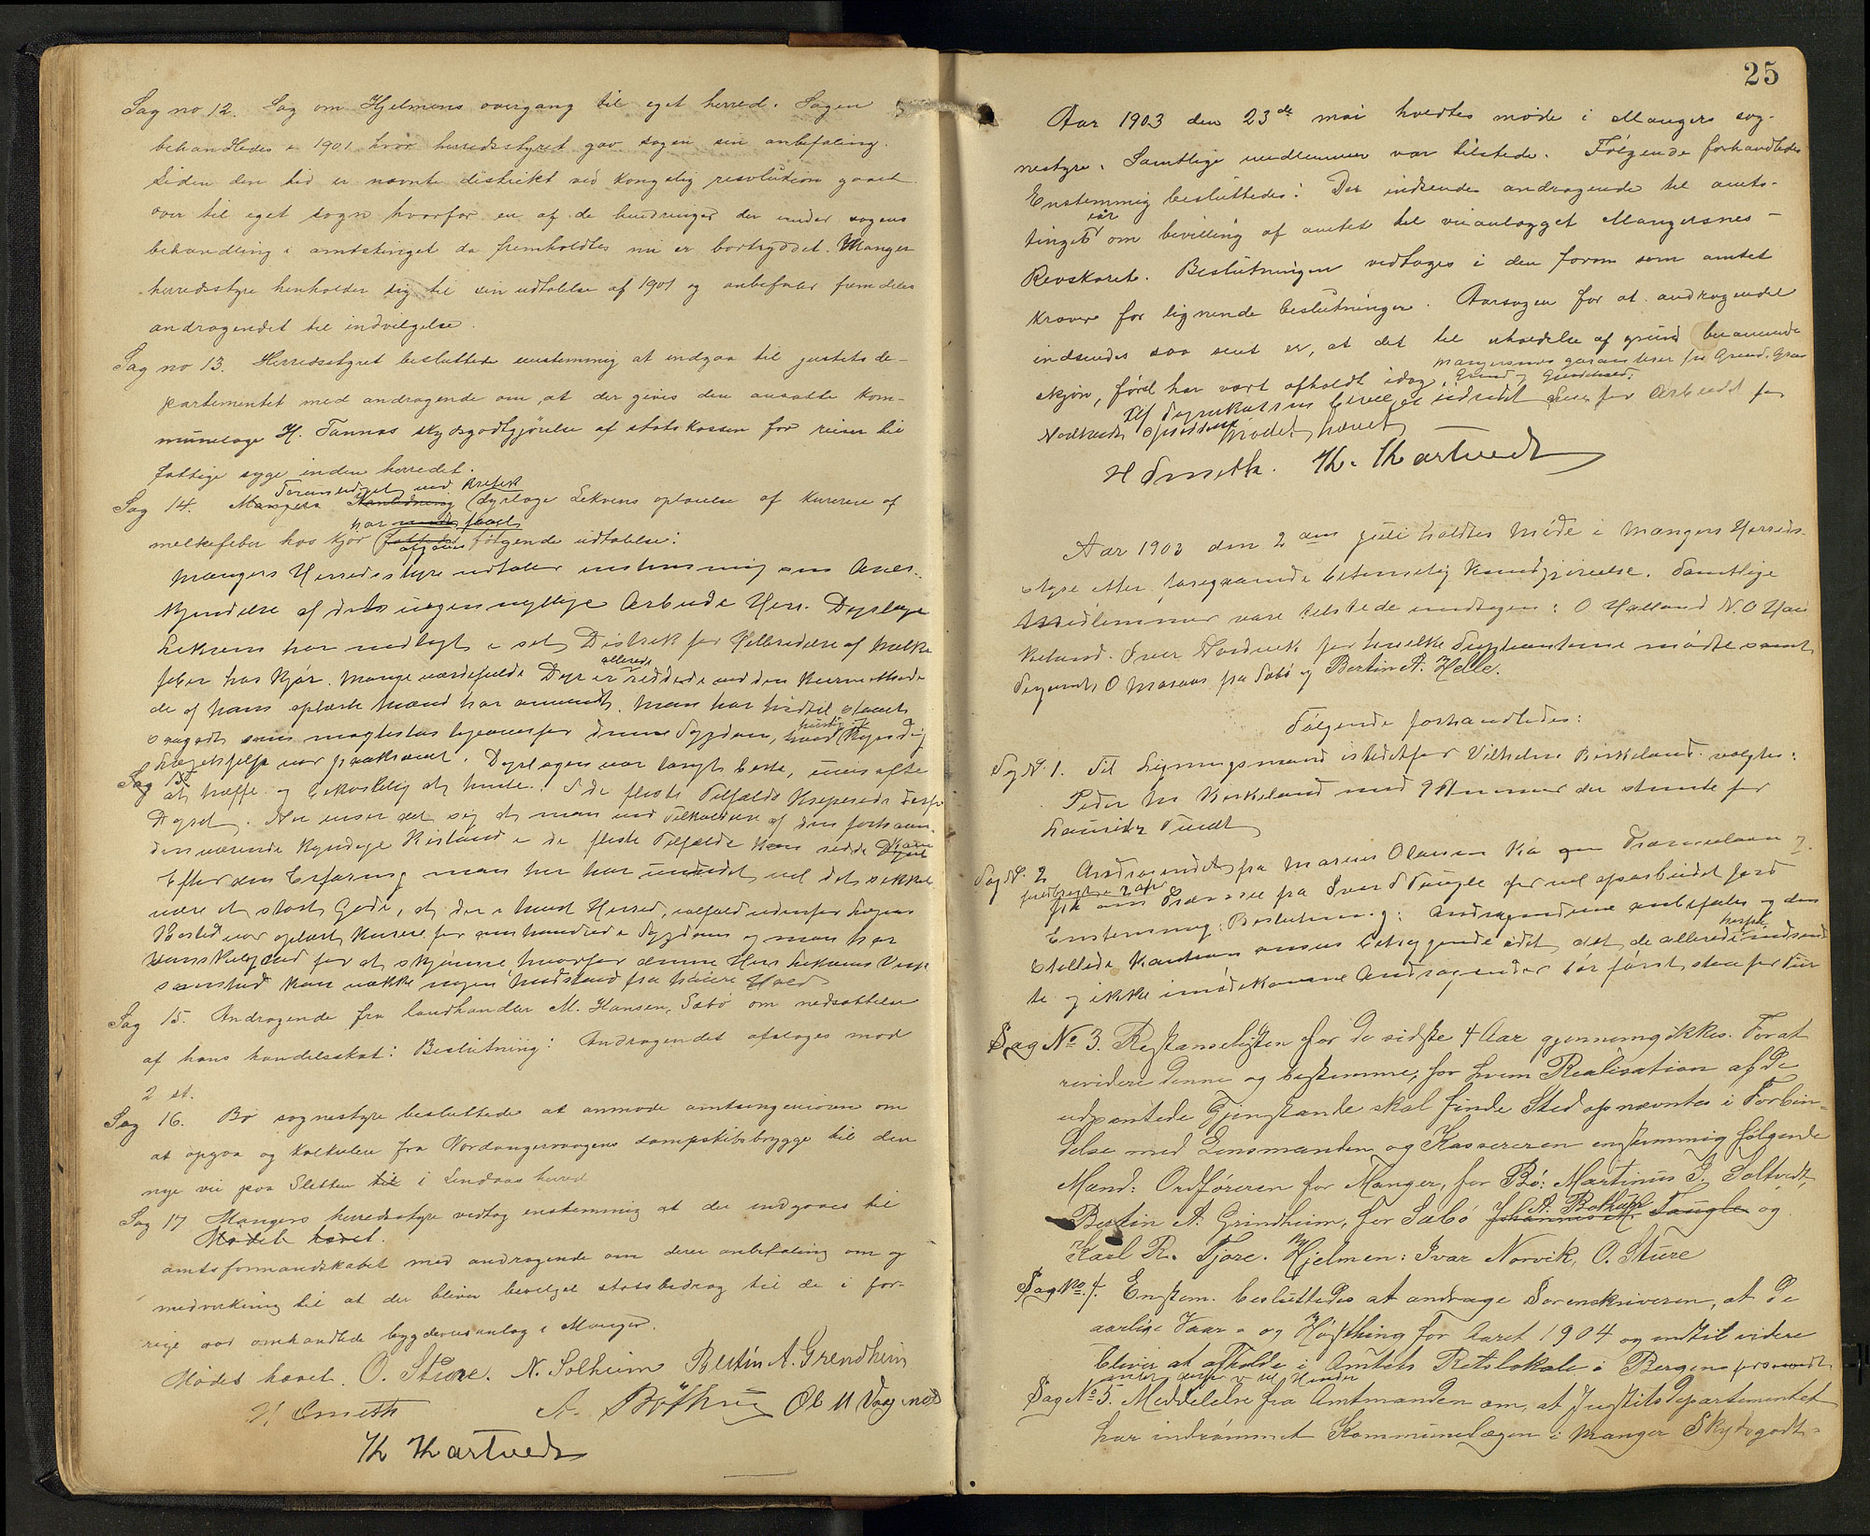 Sag no 12. Sag om Hjelmens overgang til eget herred. Sagen
behandledes i 1901 hvor herredsstyret gav sagen sin anbefaling.
Siden den tid er nævnte distrikt ved kongelig resolution gaaet
over til eget sogn hvorfor en af de hindringer der under sagens
behandling i amtstinget da fremholdtes nu er bortryddet. Manger
herredsstyre henholder sig til sin udtalelse af 1901 og anbefaler fremdeles
andragendet til indvilgelse.
Sag no 13. Herredsstyret besluttede enstemmig at indgaa til justitsde-
partementet med andragende om at der gives den ansatte kom-
munelæge H. Tannæs skydsgodtgjørelse af statskassen for reiser til
fattige syge inden herredet.
Sag 14. Mangers
dyrlæge Lekvens oplærelse af kurerere af
melkefeber hos kjør har afgivet følgende udtalelse:
Mangers Herredsstyre udtaler enstemmig sin Aner-
kjendelse af det uegennyttige Arbeide Herr Dyrlæge
Lekven har nedlagt i sit Distrik for Helbredelse af Melke
feber hos Kjør. Mange værdefulde Dyr er allerede reddede ved den Kurmethode
de af hans oplærte Mænd har anvendt. Man har hidtil staaet
saagodt som magtesløs ligeoverfor denne Sygdom, hvad hurtig Kyndig
Lægehjelp var paakrævet. Dyrlægen var langt borte, uvis ofte
Sag 15
at træffe og bekostelig at hente. I de fleste Tilfælde Kreperede derfor
Dyret. Nu viser det sig at man ved Tilkaldelse af den forhaan-
denværende Kyndige Bistand i de fleste Tilfælde kan redde
Efter den Erfaring man her har vil det sikkert
være et stort Gode, at der i hvert Herred, ialfald udenfor Lægens
Bosted var oplært Kurere for omhandlede Sygdom og man har
vanskeligt for at skjønne hvorfor denne Herr Lekvens Virk
somhed kan vække nogen Modstand fra høiere Hold
Sag 15. Andragende fra landhandler M. Hansen, Sæbø om nedsættelse
af hans handelsskat: Beslutning: Andragendet afslaaes mod
2 st.
Sag 16. Bø sognestyre besluttede at anmode amtsingeniøren om
at opgaa og kalkulere fra Nordangervaagens dampskibsbrygge til den
nye vei paa Sletten til i Lindaas herred
Sag 17 Mangers herredsstyre vedtog enstemmig at der indgaaes til
Mødet hævet.
amtsformandskabet med andragende om deres anbefaling om og
medvirkning til at der bliver bevilget statsbidrag til de i for-
rige aar omhandlede bygdeveianlæg i Manger.
Mødet hævet. O. Sture. N. Solheim Bertin A. Grendheim
H Smith A. Ol M Vaagenes
Th Thartvedt

25
Aar 1903 den 23de mai holdtes møde i Mangers sog-
nestyre. Samtlige medlemmer var tilstede. Følgende forhandledes
Enstemmig besluttedes: Der indsendes andragende til amts-
tinget iaar om bevilling af amtet til veianlægget Mangersnes -
Revskaret. Beslutningen vedtages i den form som amtet
kræver for lignende beslutninger. Aarsagen for at andragendet
indsendes saa sent er, at det til erholdelse af grund benævnte
skjøn, først har vært afholdt idag. Mangersnes garanterer fri Grund, Grus
Grund og Gjerdehold.
Af Sognekassen
Mødet hævet
H Smith. Th. Thartvedt

Aar 1903 den 2den juli holdtes Møde i Mangers Herreds-
styre efter foregaaende betimelig Kundgjørelse. Samtlige
Medlemmer vare tilstede undtagen: O Halland N. O
Iver Nordvik for hvilke Suppleanterne mødte samt
O Mosaas fra Sæbø og Bertin A. Helle.
Følgende forhandledes:
Sag No. 1. Til Ligningsmand istedetfor Vilhelm Birkeland valgtes:
Peder M Birkeland med 9 Stemmer der stemte for
Laurits Tvedt
Sag No. 2 Andragendet fra Marius Olausen
Iver D Taugle
Enstemmig Beslutning: Andragendene anbefales og den
stillede Kaution ansees betryggende
te og ikke imødekomne Andragender bør først staa for Tur
Sag No 3. Restanselisten for de sidste 4 Aar gjennemgikkes. For at
revidere denne og bestemme, for hvem Realisation af de
udpantede Gjenstande skal finde Sted opnævntes i Forbin-
delse med Lensmanden og Kassereren enstemmig følgende
Mænd: Ordføreren for Manger, for Bø: Martinus J. Soltvedt,
Bertin A. Grindheim, for Sæbø Johannes M. Taugle og
Karl R. Fjore. Hjelmen: Ivar Norvik, O. Sture
Sag No. 4. Enstem. besluttedes at andrage Sorenskriveren, at de
aarlige Vaar- og Høstthing for Aaret 1904 og indtil videre
bliver at afholde i Amtets Retslokale i Bergen
Sag No 5. Meddelelse fra Amtmanden om, at Justitsdepartementet
har indrømmet Kommunelægen i Manger Skydsgodt-